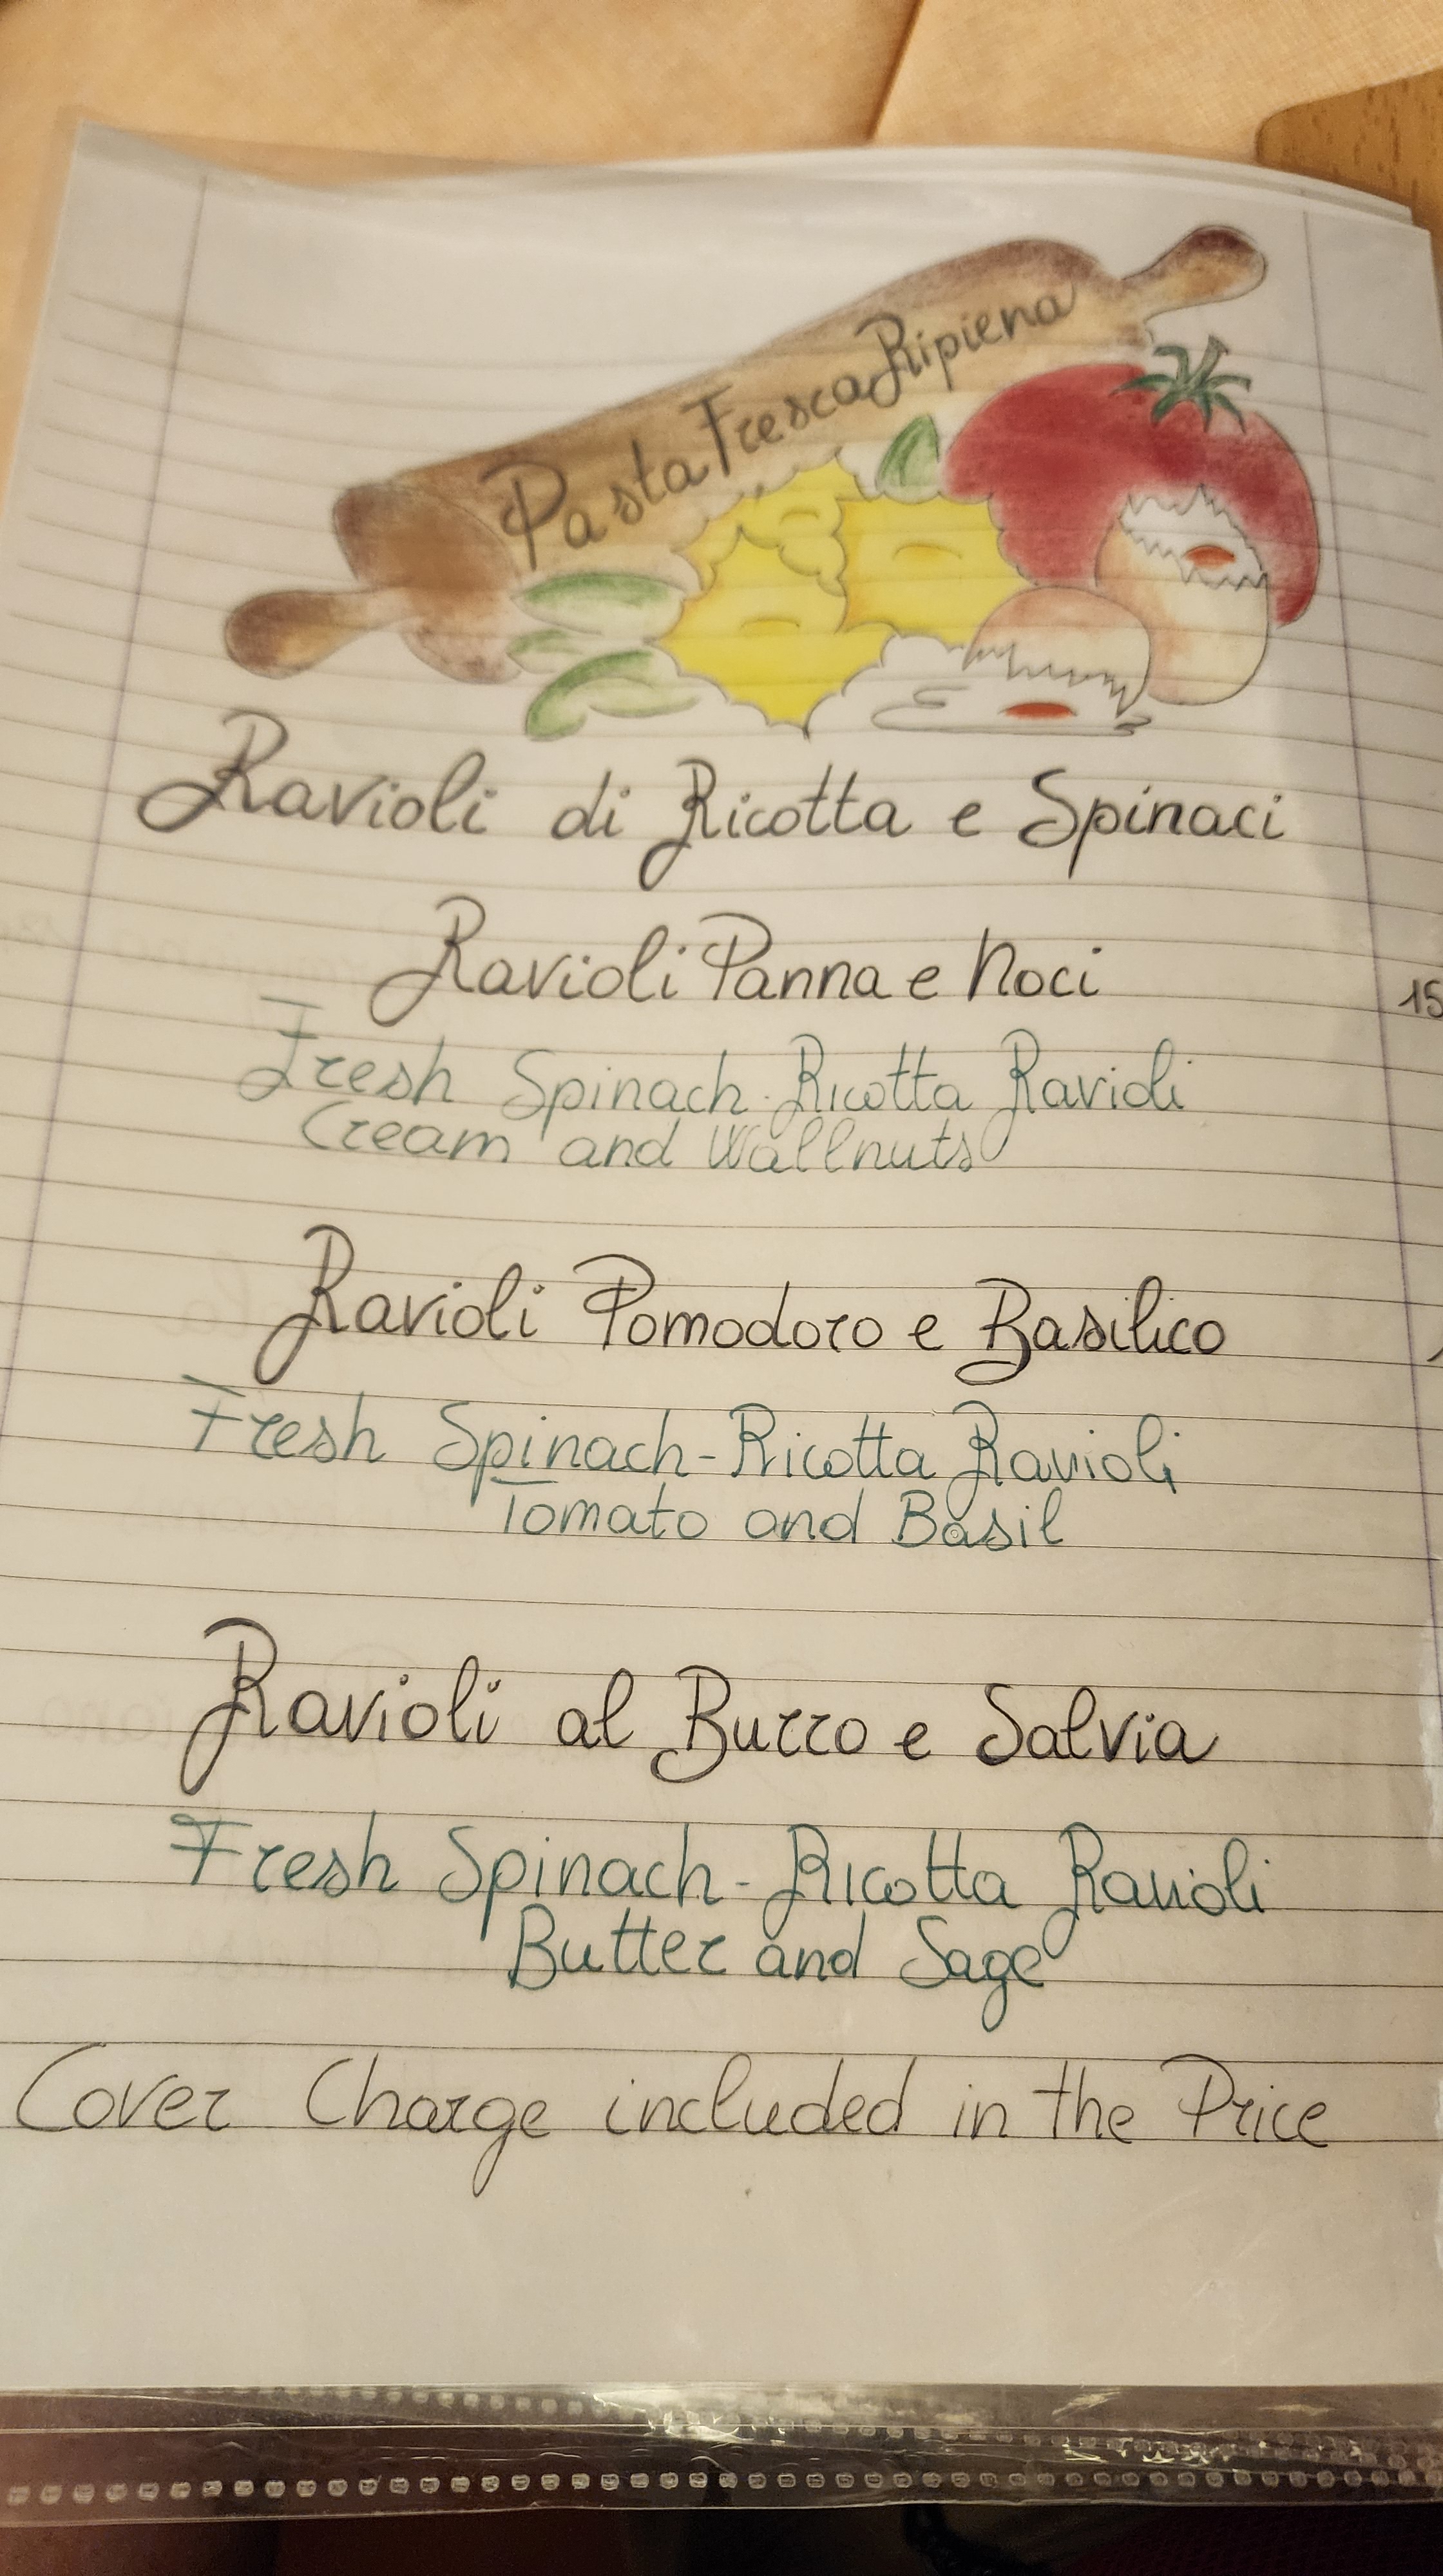 Pasta Fresca Ripiena
Ravioli di Ricotta e Spinaci
Ravioli Panna e Noci 15
Fresh Spinach-Ricotta Ravioli
Cream and Wallnuts
Ravioli Pomodoro e Basilico
Fresh Spinach-Ricotta Ravioli
Tomato and Basil
Ravioli al Burro e Salvia
Fresh Spinach-Ricotta Ravioli
Butter and Sage
Cover Charge included in the Price